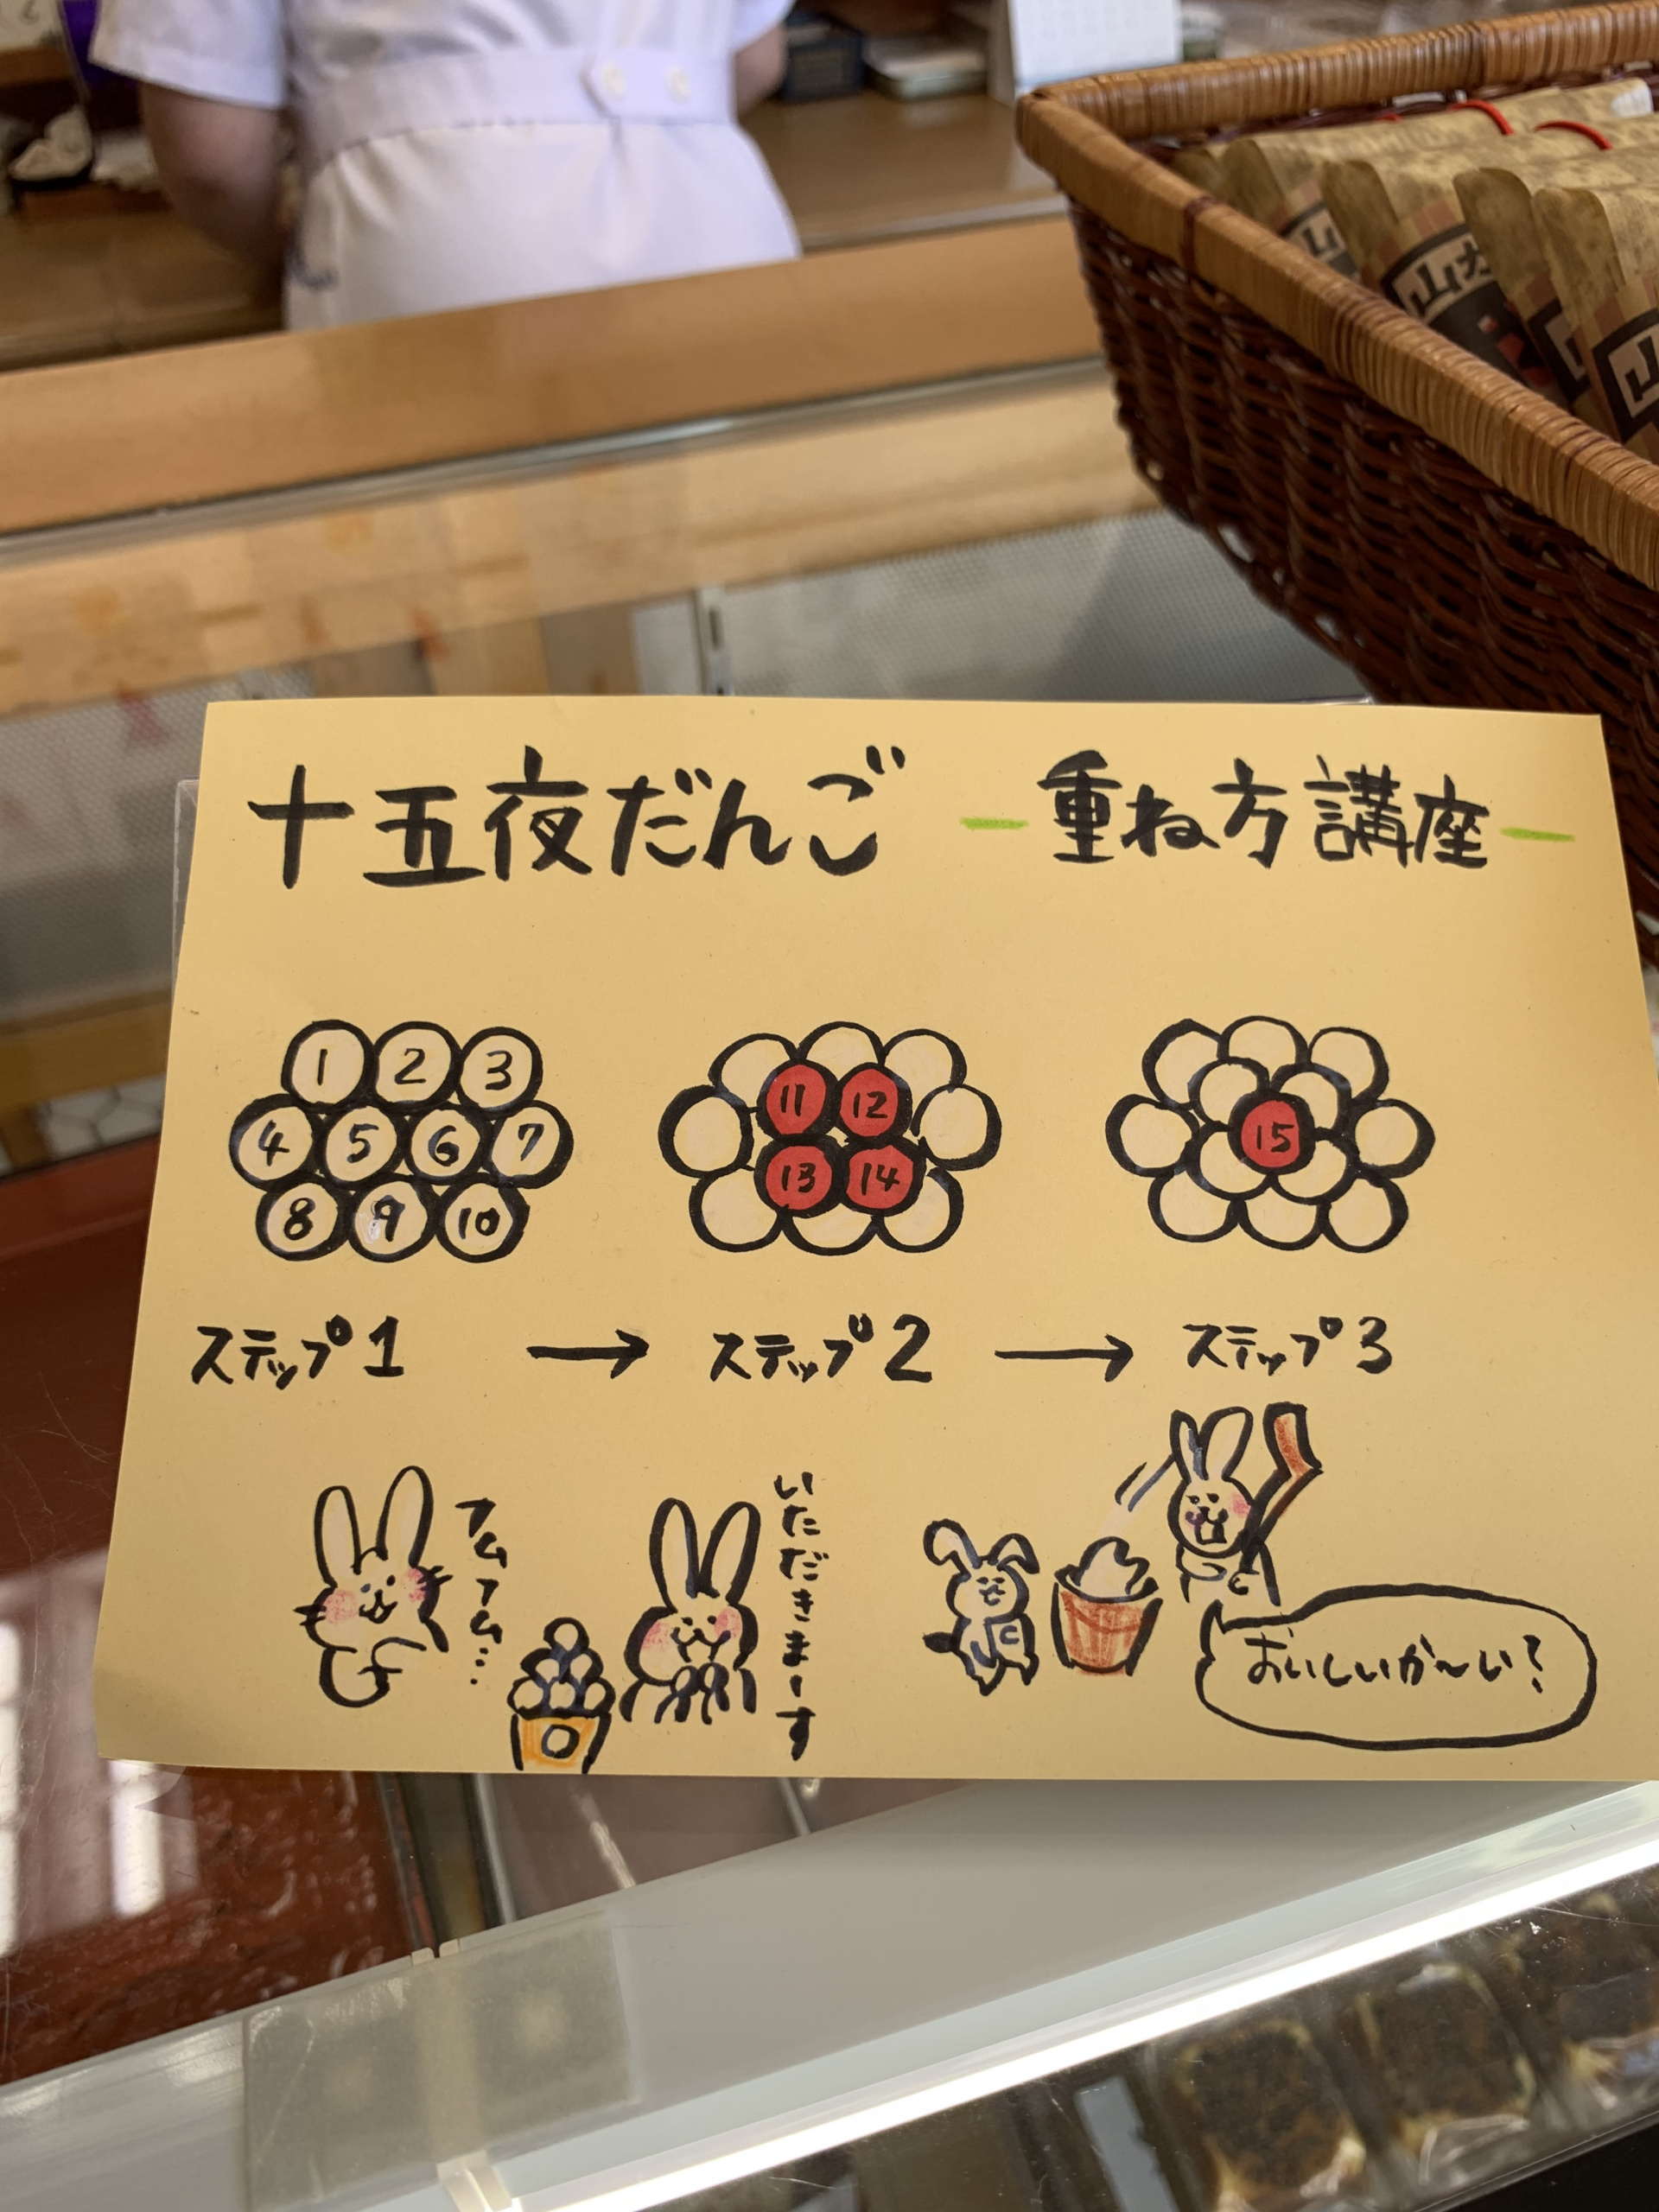 十五夜だんご -重ね方講座-
1 2 3
4 5 6 7
8 9 10
11 12
13 14
15
ステップ1 → ステップ2 → ステップ3
フムフム…
いただきまーす
おいしいか〜い？